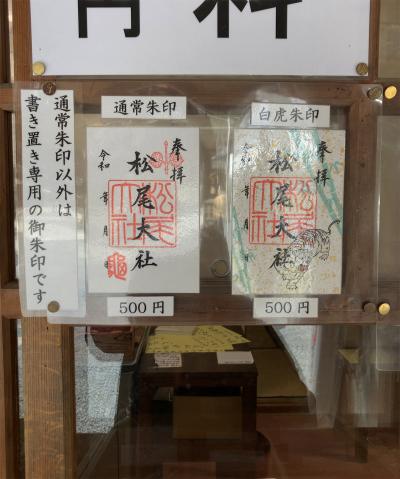 通常朱印以外は
書き置き専用の御朱印です
通常朱印
奉拝
松尾大社
令和 年 月 日
500円
白虎朱印
奉拝
松尾大社
令和 年 月 日
500円